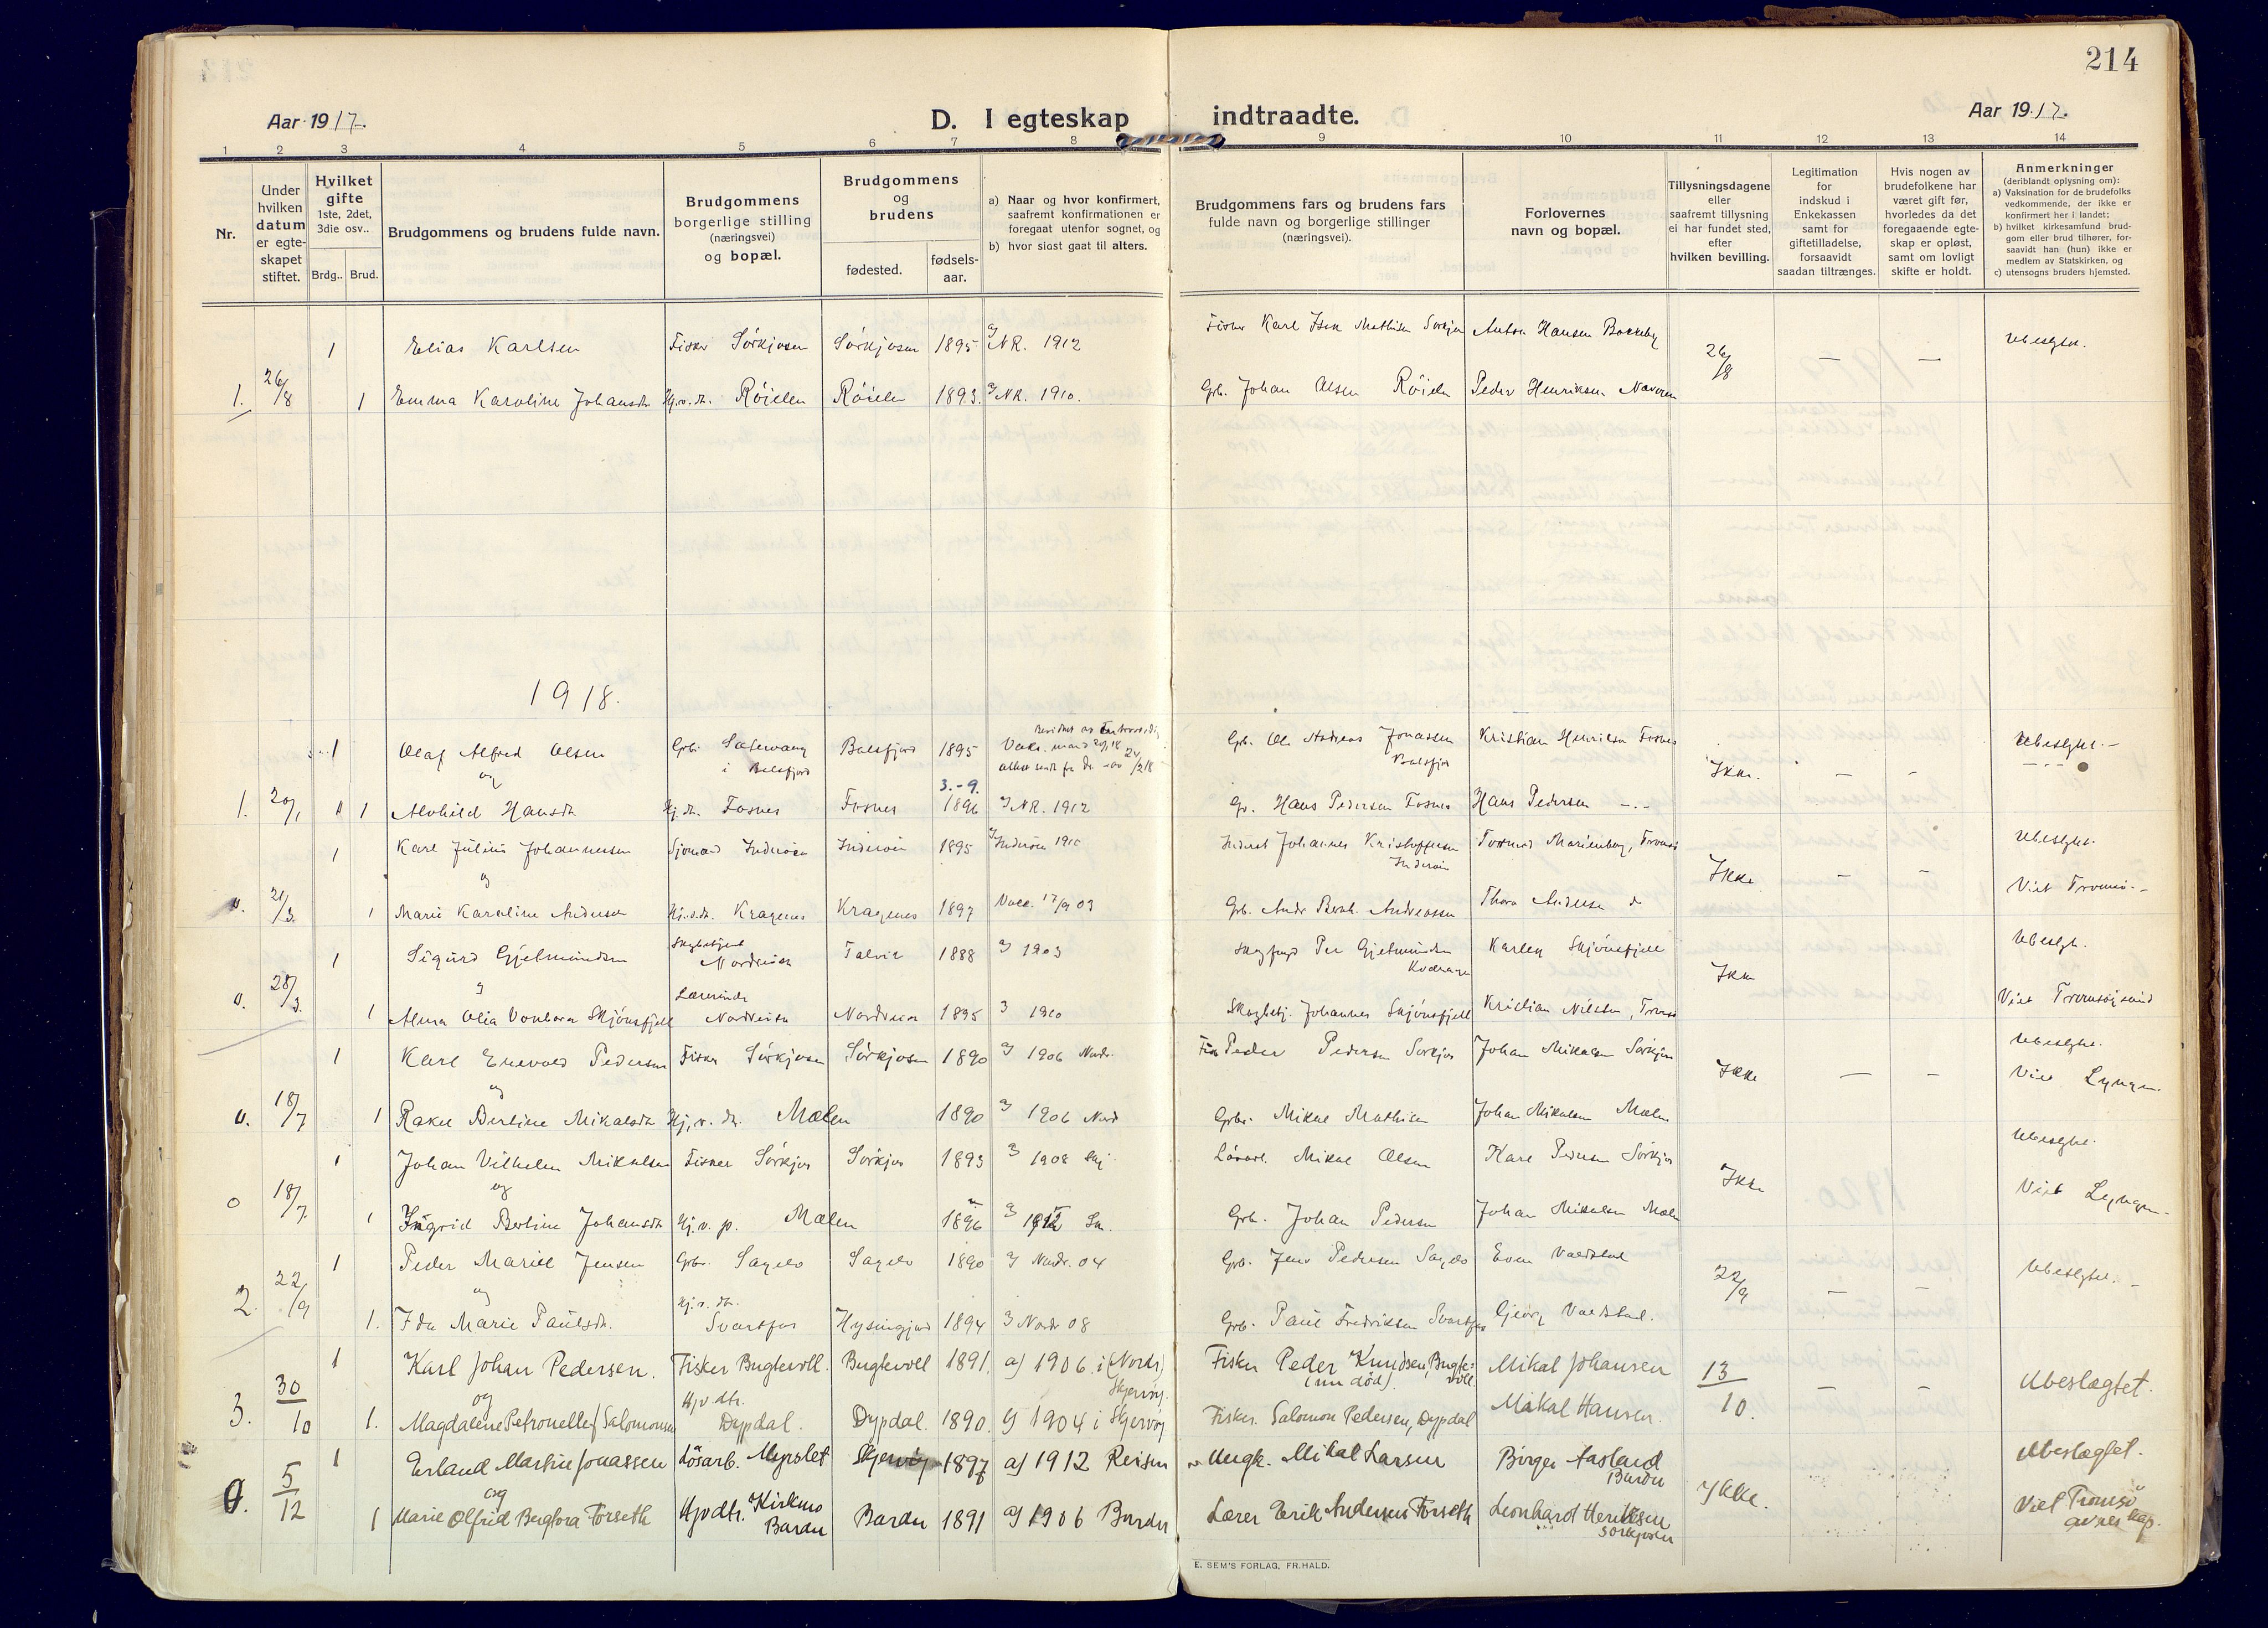 214
Aar 1917.
D. I egteskap indtraadte.
Aar 1917.
1 2 3 4 5 6 7 8 9 10 11 12 13 14
Nr.
Under
hvilken
datum
er egte-
skapet
stiftet.
Hvilket
gifte
1ste, 2det,
3die osv..
Brdg.. Brud.
Brudgommens og brudens fulde navn.
Brudgommens
borgerlige stilling
(næringsvei)
og bopæl.
Brudgommens
og
brudens
fødested.
fødsels-
aar.
a) Naar og hvor konfirmert,
saafremt konfirmationen er
foregaat utenfor sognet, og
b) hvor sidst gaat til alters.
Brudgommens fars og brudens fars
fulde navn og borgerlige stillinger
(næringsvei).
Forlovernes
navn og bopæl.
Tillysningsdagene
eller
saafremt tillysning
ei har fundet sted,
efter
hvilken bevilling.
Legitimation
for
indskud i
Enkekassen
samt for
giftetilladelse,
forsaavidt
saadan tiltrænges.
Hvis nogen av
brudefolkene har
været gift før,
hvorledes da det
foregaaende egte-
skap er opløst,
samt om lovligt
skifte er holdt.
Anmerkninger
(deriblandt oplysning om):
a) Vaksination for de brudefolks
vedkommende, der ikke er
konfirmert her i landet;
b) hvilket kirkesamfund brud-
gom eller brud tilhører, for-
saavidt han (hun) ikke er
medlem av Statskirken, og
c) utensogns bruders hjemsted.
1 Elias Karlsen Fisker Sörkjosen Sörkjosen 1895 NR. 1912 Karl Isak Mathisen Sorkjos Anton Hansen 26/8 — — Ubeslgtet.
1. 26/8 1 Emma Karoline Johansdt. Hj.v.dt. Röielen Röielen 1893. NR. 1910. Grb. Johan Olsen Röielen Peder Henriksen
1918.
1 Olaf Alfred Olsen Grb. i Balsfjord Balsfjord 1895 Grb. Ole Andreas Jonassen Balsfjor Kristian Henriksen Fosnes Ikke. — — Ubeslgtet.
og
3.-9.
1. 20/1 1 Alvhild Hansdt. Hj.dt. Fosnes Fosnes 1896 NR. 1912 Gr. Hans Pedersen Fosnes Hans Pedersen -.-
1 Karl Julius Johannessen Sjømand Inderöen Inderöen 1895 Inderöen 1910 Johannes Kristoffersen Inderöen Marienborg, Tromsö Ikke — — Ubeslgtet.
og
0. 21/3. 1 Marie Karoline Andersen Hj.v.dt. Kragenes Kragenes 1897 Vacc. 17/9 03 Grb. Andr. Bernh. Andreassen Thora Andersen do Viet Tromsö.-
1 Sigurd Gjetmundsen Skogbetjent Nordreisen Talvik 1888 1903 Per Gjetmundsen Karley Skjönsfjell Ikke Ubeslgt.
0. 28/3. 1 Alma Olia Vonbora Skjönsfjell Lærerinde Nordreisa Nordreisa 1895 1910 Skogbetj. Johannes Skjönsfjell Kristian Nilsen, Tromsö Viet Tromsöysund
1 Karl Enevold Pedersen Fisker Sörkjosen Sörkjosen 1890 1906 Nordr. Fisk Peder Pedersen Sorkjos Johan Mikalsen Sörkjos Ikke — — Ubeslgtet.
og
0. 18/7 1 Rakel Berline Mikalsdt Hj.v.dt. Mælen 1890 1906 Nord Grbr. Mikal Mathisen Johan Mikalsen Mælen Viet Lyngen.
1 Johan Vilhelm Mikalsen Fisker Sörkjos Sörkjos 1893 1908 Skj. Lösarb. Mikal Olsen Karl Pedersen Sörkjos Ikke Ubeslgtet.
og
0 18/7. 1 Ingrid Berline Johansdt Hj.v.p. Mælen 1896 1912 Sk. Grb. Johan Pedersen Johan Mikalsen Mælen Viet Lyngen.
1 Peder Mariel Jensen Grb. Sagelv Sagelv 1890 Nordr. 04 Grb. Jens Pedersen Sagelv Even Vaddstad 22/9 — — Ubeslgtet. -
og
2. 22/9 1. Ida Marie Paulsdt. Hj.v.dt. Svartfos 1894 Nordr 08 Grb. Paul Fredriksen Svartfos Georg Vaddstad.
1 Karl Johan Pedersen. Fisker Bugtevoll. Bugtevoll 1891. a) 1906. i (Nordr) Skjervöy. Fisker Peder Knudsen, Bugte-
voll. (nu död). Mikal Johansen 13/10. — — Ubeslægtet.
og
3. 30/10 1. Magdalene Petronelle Salomonsen Hjv.dtr. Dypdal. Dypdal. 1890. a) 1904 i Skjervöy Fisker. Salomon Pedersen, Dypdal Mikal Hansen.
1 Erland Martin Jonassen Lösarb. Myrslet Skjervöy 1897 a) 1912 Reisen Ungk. Mikal Larsen Birger Aasland Bardu Ikke. Ubeslægtet.
og
0. 5/12 1 Marie Olfrid Bergfora Forseth Hjvdtr. Kirkmo Bardu Bardu 1891 a) 1906 Bardu Lærer Erik Andersens Forseth Leonhard Henriksen Sörkjosen Viet Tromsö
E. SEM'S FORLAG, FR.HALD.